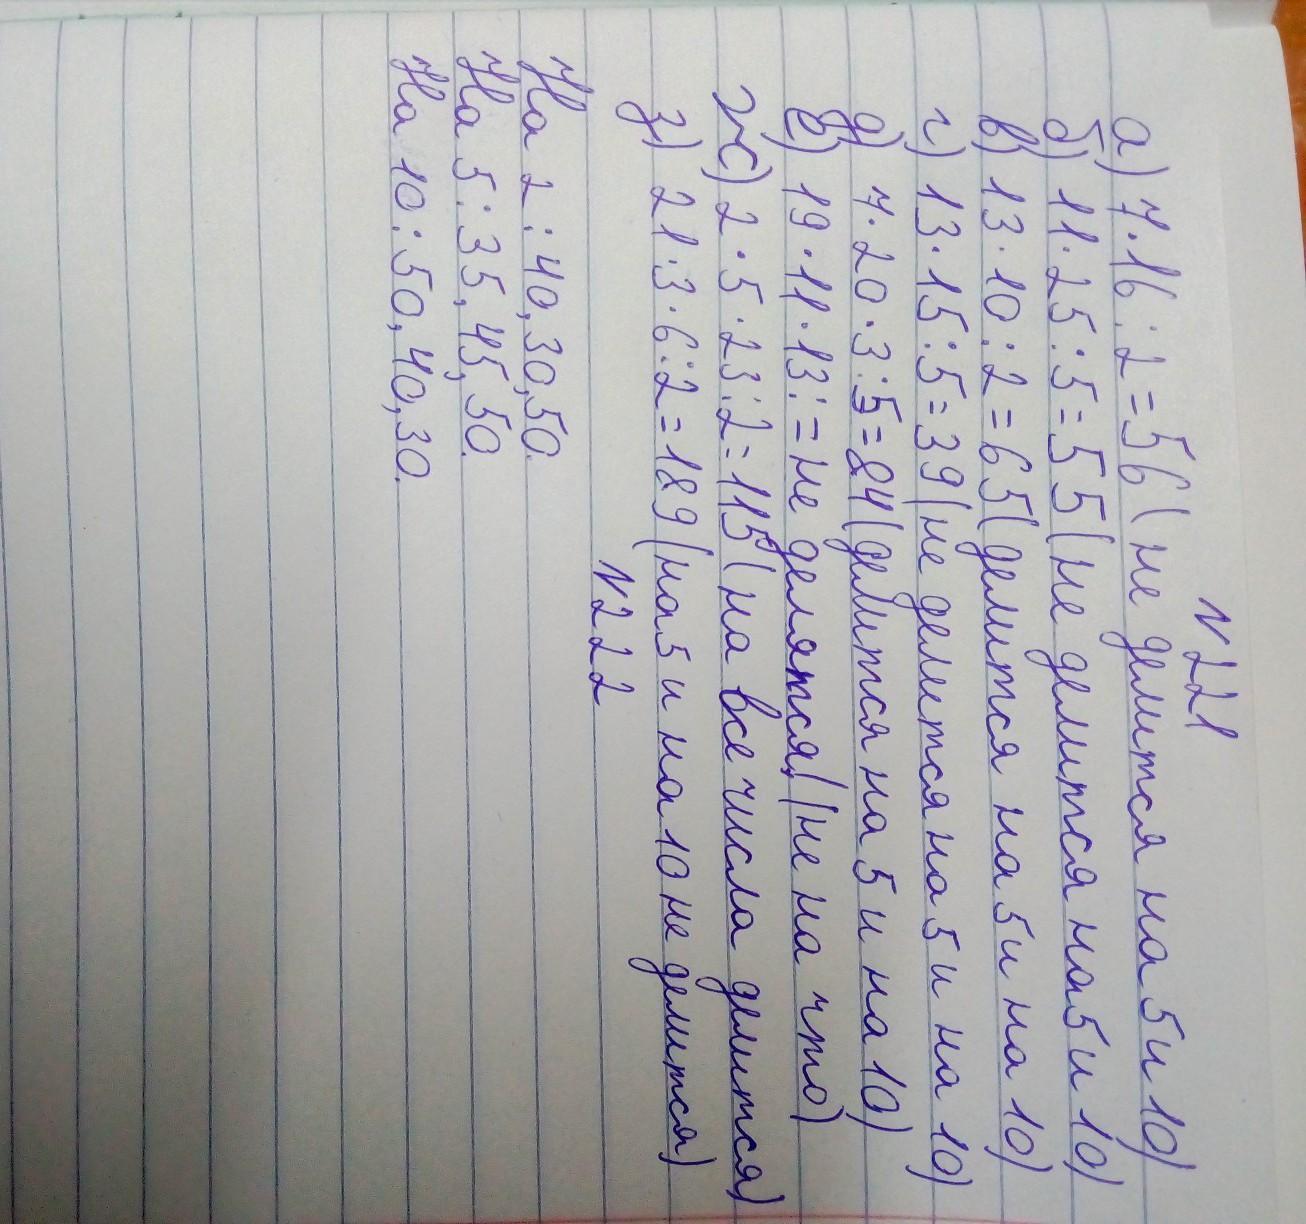 N221
а) 7·16:2=56 (не делится на 5 и 10)
б) 11·25:5=55 (не делится на 5 и 10)
в) 13·10:2=65 (делится на 5 и на 10)
г) 13·15:5=39 (не делится на 5 и на 10)
д) 7·20·3:5=84 (делится на 5 и на 10)
е) 19·11·13:=не делятся, (не на что)
ж) 2·5·23:2=115 (на все числа делится)
з) 21·3·6:2=189 (на 5 и на 10 не делится)
N222
На 2:40,30,50.
На 5:35,45,50.
На 10:50,40,30.